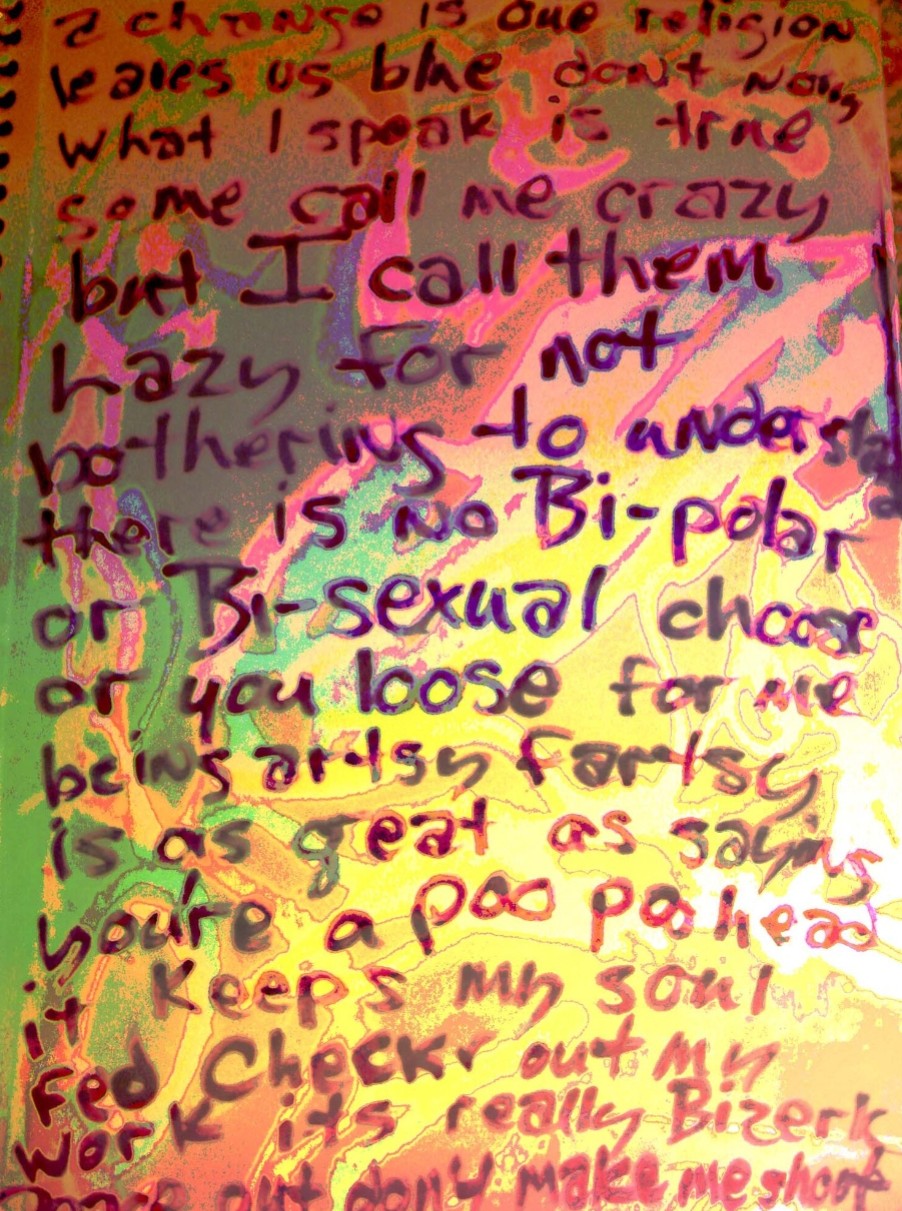 2 change is our religion
leaves us blue don't
what I speak is true
some call me crazy
but I call them
hazy for not
bothering to understa
there is no Bi-polar
or Bi-sexual choose
or you loose for me
being artsy fartsy
is as great as saying
you're a poo poo head
it keeps my soul
Fed Check out my
work its really Bizerk
Peace out don't make me short